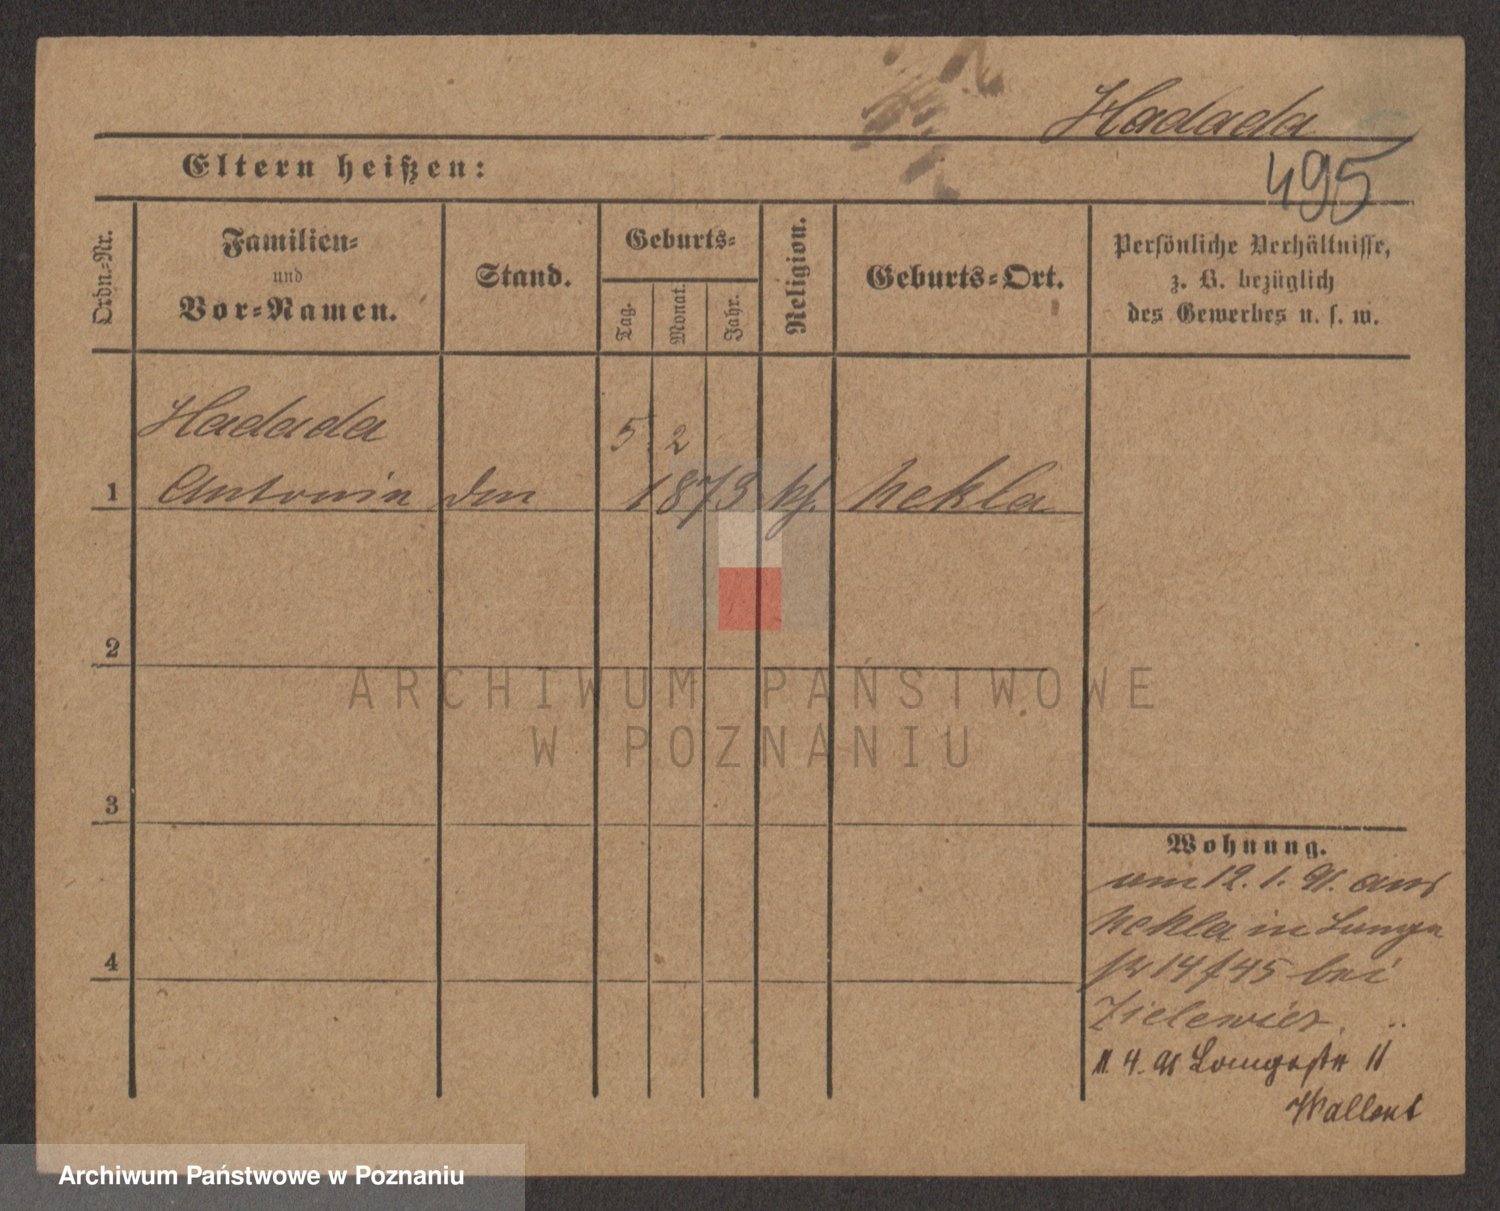 Hadada
Eltern heißen:
495
Ordn.-Nr.
Familien-
und
Vor-Namen.
Stand.
Geburts-
Tag.
Monat.
Jahr.
Religion.
Geburts-Ort.
Persönliche Verhältnisse,
z. B. bezüglich
des Gewerbes u. s. w.
Hadada
5. 2
1 Antonin den 1873 kf. Nekla
2
ARCHIWUM PAŃSTWOWE
W POZNANIU
3
Wohnung.
am 12. 1. 91. aus
Nekla in Lange
str 14 / 45 bei
Zielewicz.
11. 4. 91 Langestr 11
4
Archiwum Państwowe w Poznaniu